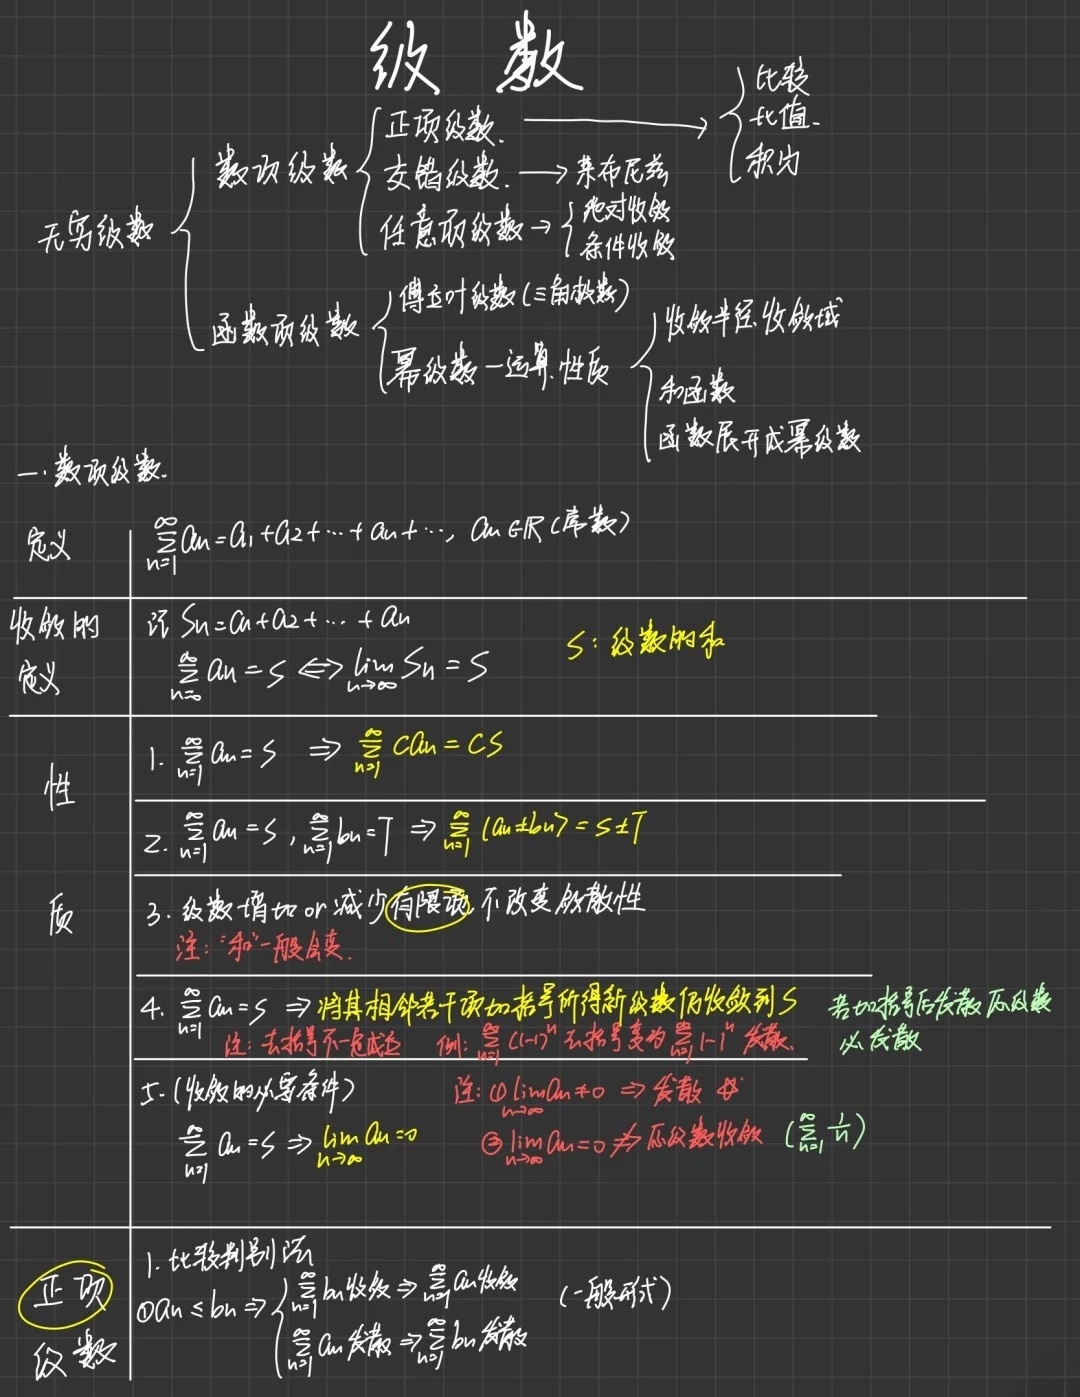 级 数
无穷级数
数项级数
正项级数.
比较
比值.
积分
交错级数. → 莱布尼兹
任意项级数 →
绝对收敛
条件收敛
函数项级数
傅立叶级数(三角级数)
幂级数 — 运算.性质
收敛半径 收敛域
和函数
函数展开成幂级数
一. 数项级数.
定义
∑_{n=1}^{∞} an = a1 + a2 + … + an + …, an ∈ R (常数)
收敛的
定义
记 Sn = a1 + a2 + … + an
∑_{n=0}^{∞} an = S ⟺ lim_{n→∞} Sn = S
S: 级数的和
性
质
1. ∑_{n=1}^{∞} an = S ⇒ ∑_{n=1}^{∞} can = CS
2. ∑_{n=1}^{∞} an = S, ∑_{n=1}^{∞} bn = T ⇒ ∑_{n=1}^{∞} (an ± bn) = S ± T
3. 级数增加 or 减少有限项 不改变敛散性
注: "和"一般会变.
4. ∑_{n=1}^{∞} an = S ⇒ 将其相邻若干项加括号所得新级数仍收敛到S
注: 去括号不一定成立 例: ∑_{n=1}^{∞} ((-1)^n 去括号变为 ∑_{n=1}^{∞} (-1)^n 发散.
若加括号后发散 原级数
必发散
5. (收敛的必要条件)
∑_{n=1}^{∞} an = S ⇒ lim_{n→∞} an = 0
注: ① lim_{n→∞} an ≠ 0 ⇒ 发散
② lim_{n→∞} an = 0 ⇏ 原级数收敛 (∑_{n=1}^{∞} 1/n)
正项
级数
1. 比较判别法
① an ≤ bn ⇒
∑_{n=1}^{∞} bn 收敛 ⇒ ∑_{n=1}^{∞} an 收敛
∑_{n=1}^{∞} an 发散 ⇒ ∑_{n=1}^{∞} bn 发散
(一般形式)